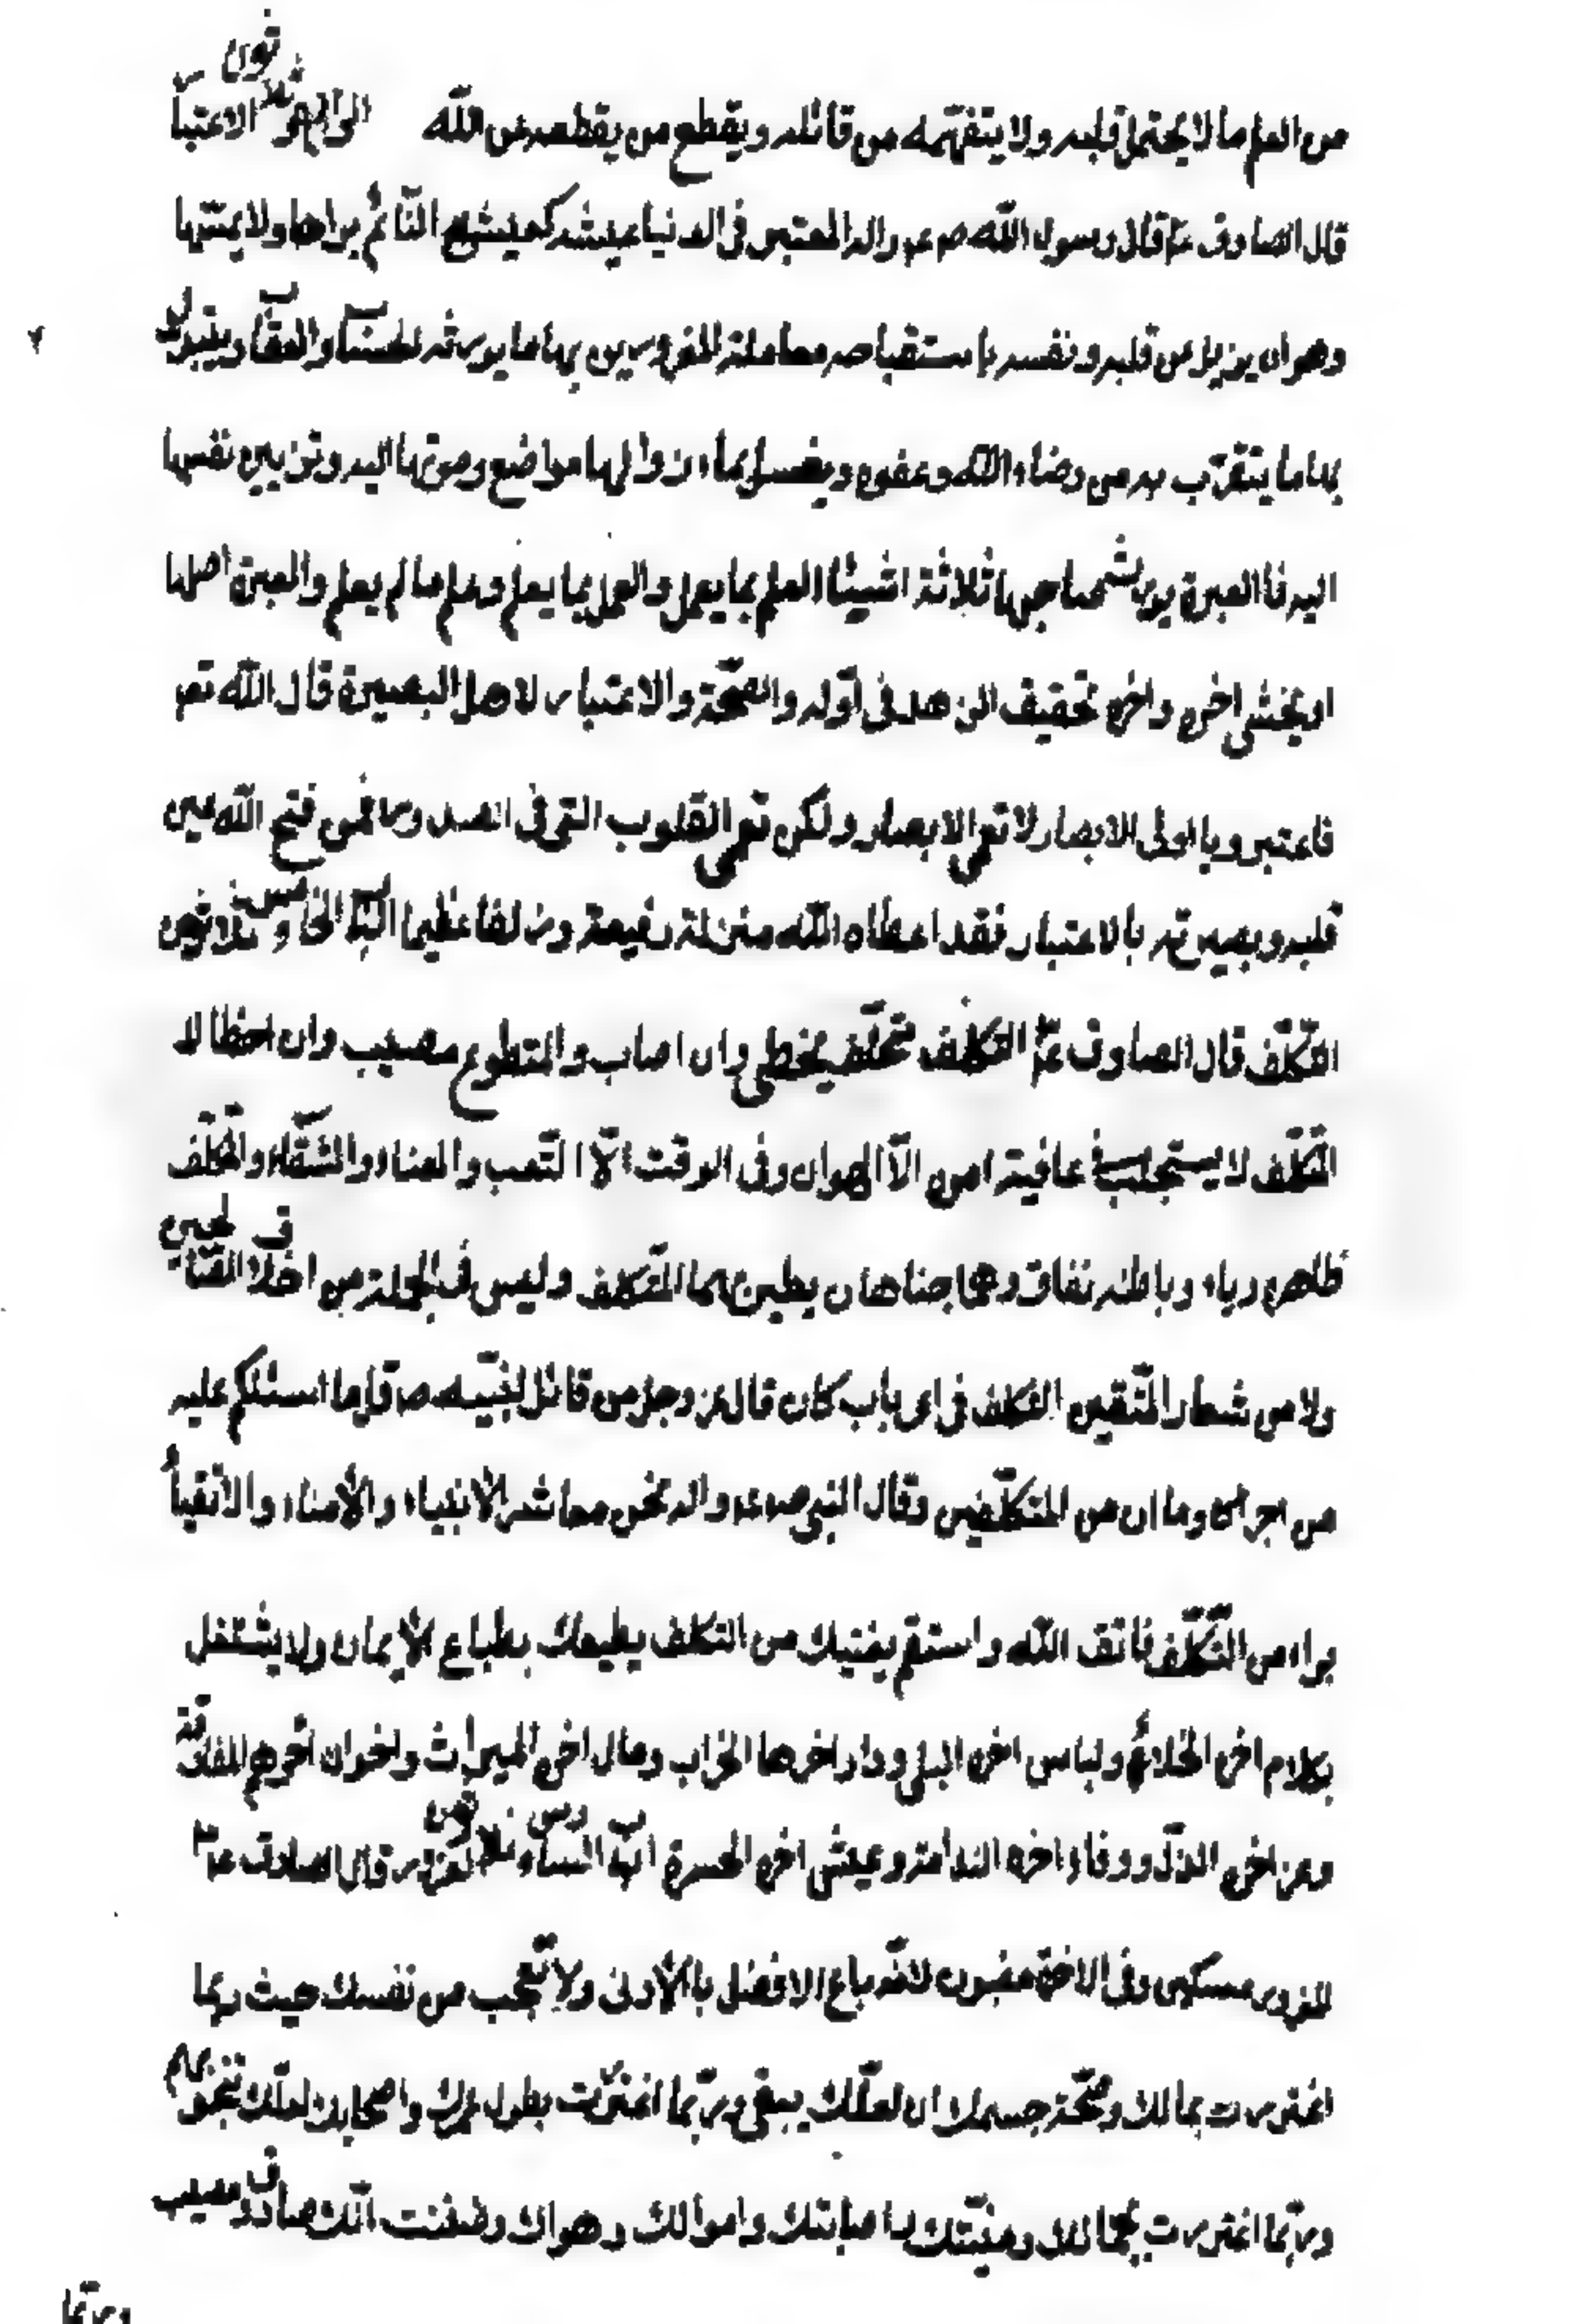 من العلم ما لا يحتمل قلبه ولا يتفهمه من قائله ويقطع من يقطعه عن الله الباب الرابع وثلاثون الاعتبار
قال الصادق عم قال رسول الله صم عم واله المعتبر في الدنيا عيشه كعيش النائم يراها ولا يمسها
وهو ان يزيل عن قلبه ونفسه باستقباحه معاملة المغرورين بها ما يورثه الحساب والعقاب ويتبدل
بها ما يتقرب به من رضاء الله وعفوه ويغسل بماء زوالها مواضع دعوتها اليه وتزيين نفسها
اليه فالعبرة يورث صاحبها ثلاثة اشيئا العلم بما يعمل والعمل بما يعلم وعلم ما لم يعلم والعبرة اصلها
اول يخشى اخره واخره تحقيق الزهد في اوله والصحة والاعتبار لاهل البصيرة قال الله تعم
فاعتبرو يا اولى الابصار لا تعمى الابصار ولكن تعمى القلوب التي في الصدور فمن فتح الله عين
قلبه وبصيرته بالاعتبار فقد اعطاه الله منزلة رفيعة وزلفا عظيما الباب الخامس وثلاثون
التكلف قال الصادق عم المتكلف متخلف يخطى وان اصاب والمتطوع مصيب وان اخطا لا
المتكلف لا يستجلب في عاقبة امره الا الهوان وفى الوقت الا التعب والعناء والشقاء والمتكلف
ظاهره رياء وباطنه نفاق وهما جناحان يطير بهما المتكلف وليس في الجملة من اخلاق الصالحين
ولا من شعار المتقين التكلف في اى باب كان قال عز وجل من قائل لنبيه صم قل ما اسئلكم عليه
من اجر وما انا من المتكلفين وقال النبى صم عم واله نحن معاشر الأنبياء والأمناء والأتقياء
براء من التكلف فاتق الله واستقم يغنيك من التكلف يطبعك بطباع الإيمان ولا يشتغل
بكلام اخره الخلاء ولباس اخره البلى ودار اخرها الخراب ومال اخره الميراث واخوان اخرهم المفارقة
وعز اخره الذل ووفاء اخره الندامة وعيش اخره الحسرة الباب السادس وثلاثون الغرة قال الصادق عم
المغرور مسكين وفى الاخرة مغبون لانه باع الافضل بالأدنى ولا تعجب من نفسك حيث ربما
اغتررت بمالك وصحة جسمك ان لعلك يبقى وربما اغتررت بطول عمرك واصحابك لعلك تنجو بهم
وربما اغتررت بجمالك ومنيتك واصابتك واموالك وهواك وظننت انك صادق ومصيب
وربما